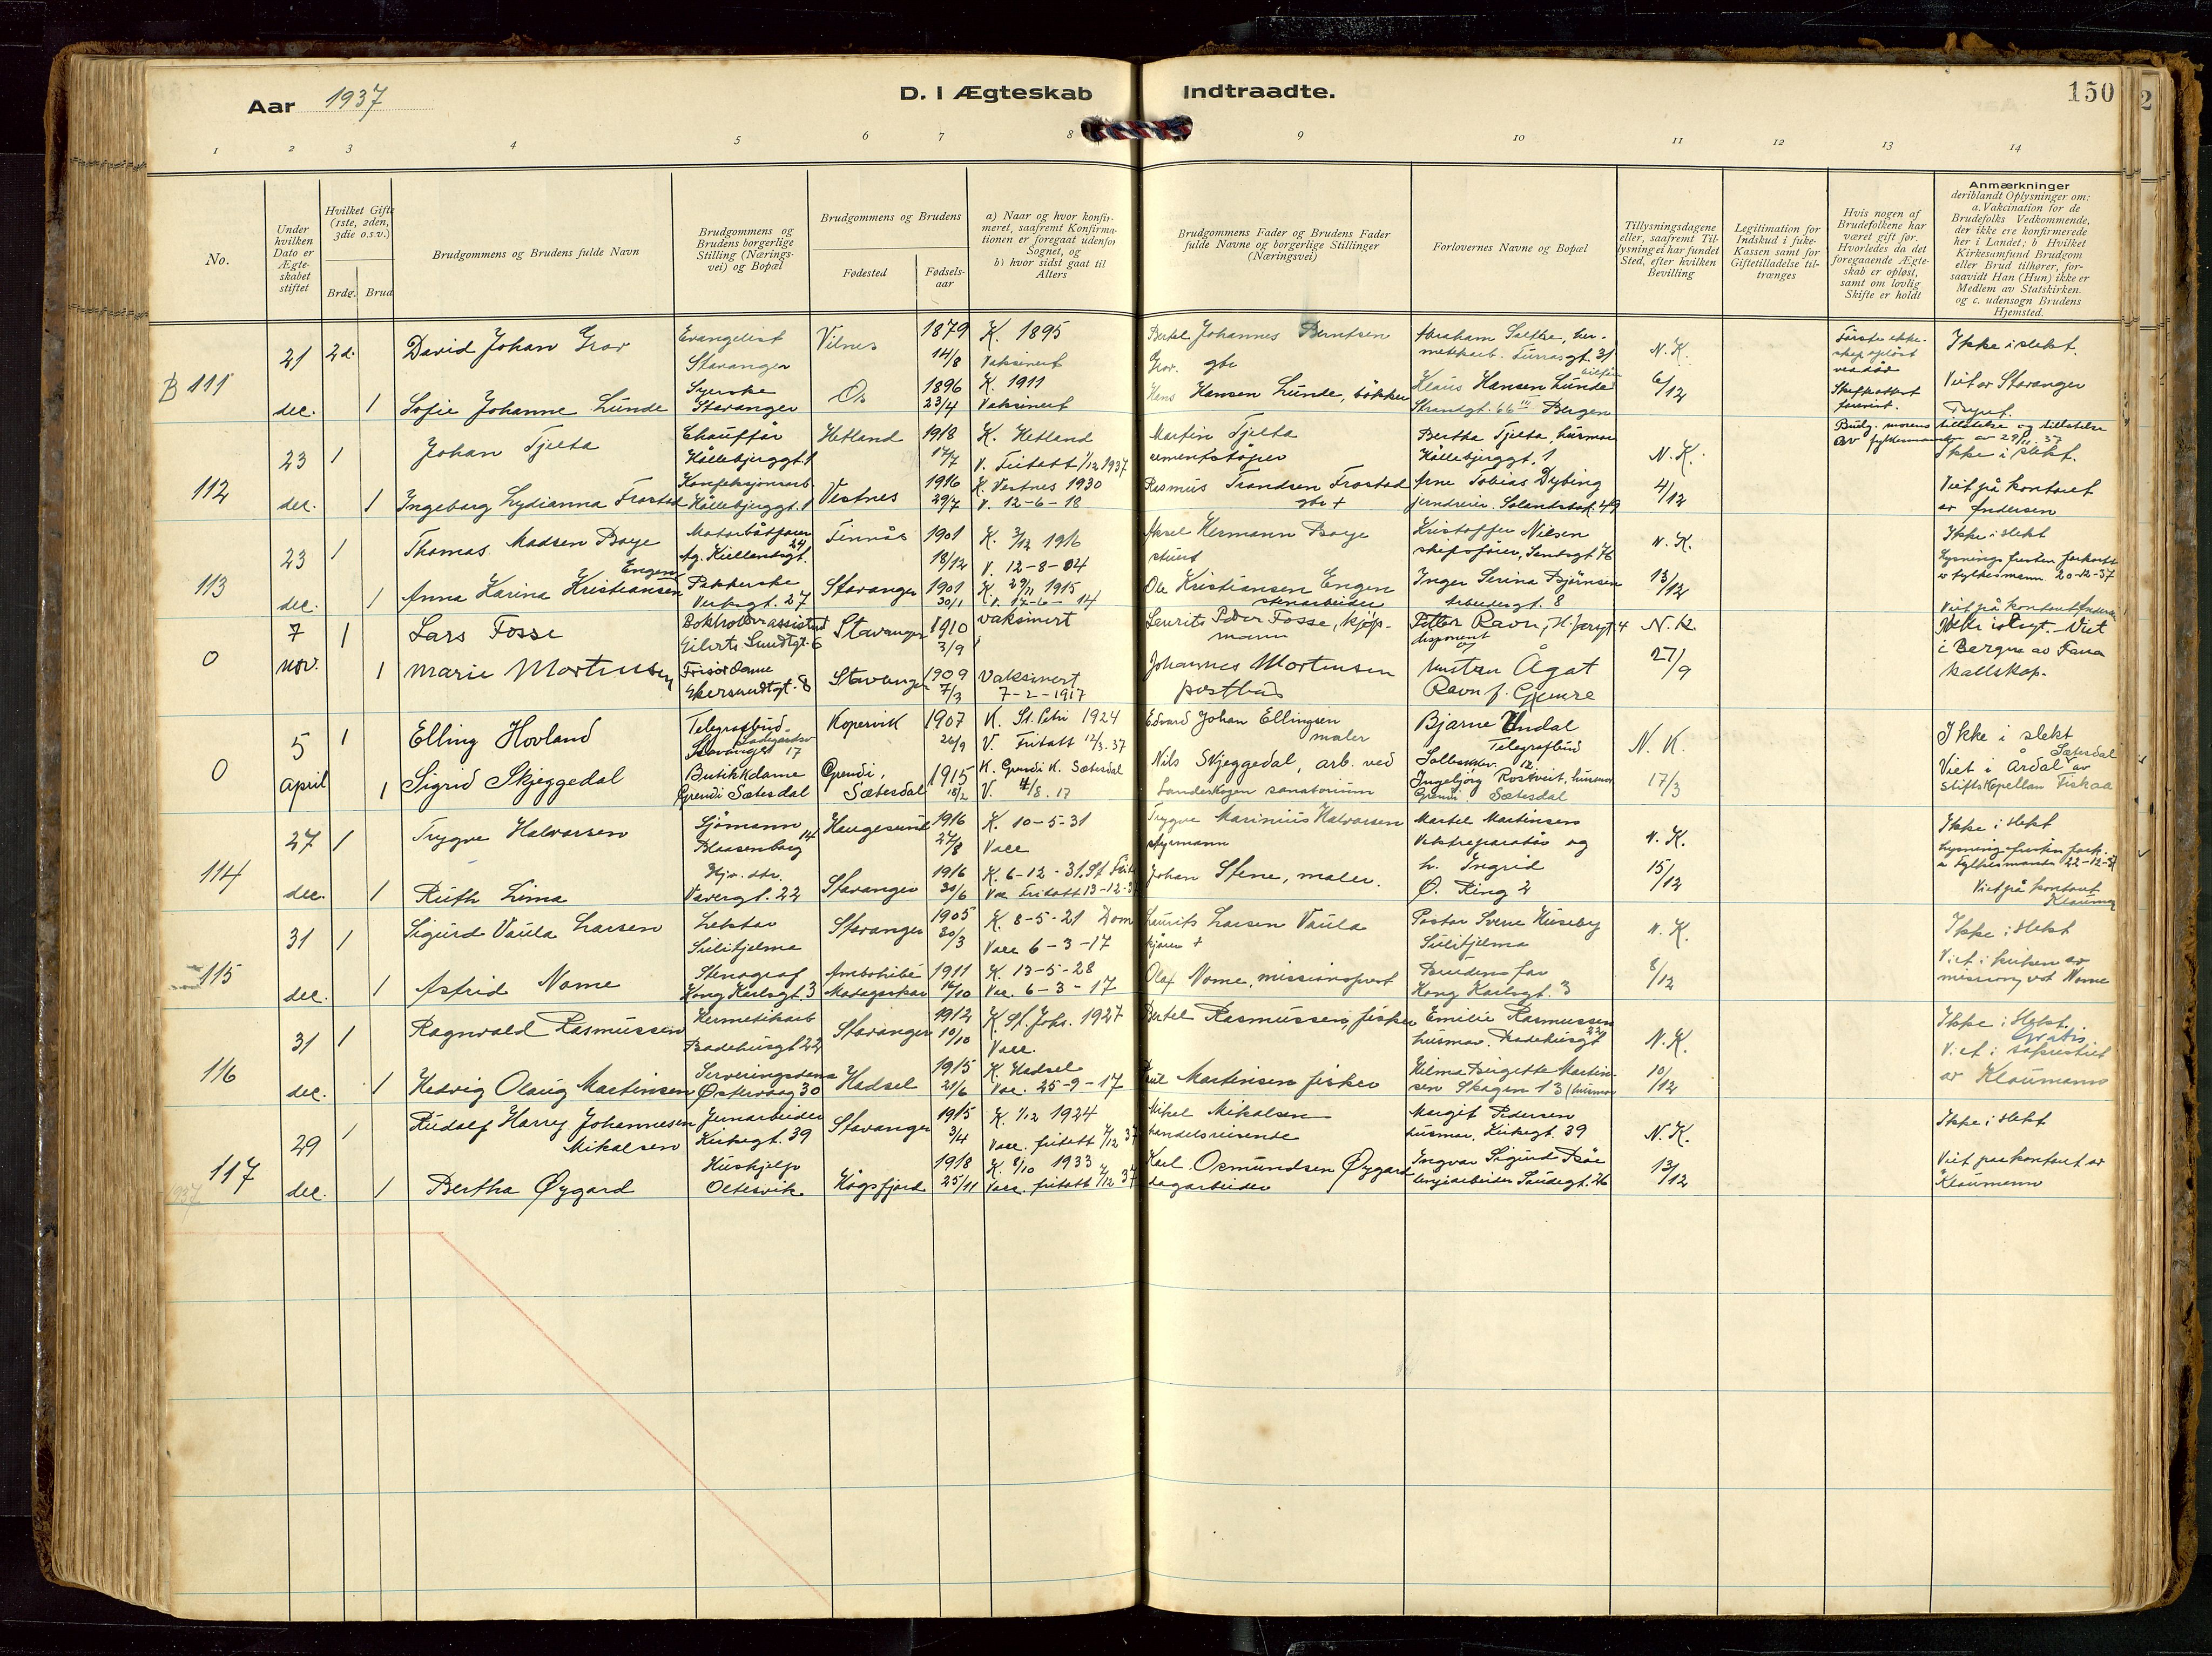 Aar 1937
D. I Ægteskab Indtraadte.
150
2
1 2 3 4 5 6 7 8 9 10 11 12 13 14
No.
Under hvilken Dato er Ægteskabet stiftet
Hvilket Gifte (1ste, 2den, 3die o.s.v.)
Brdg. Brud
Brudgommens og Brudens fulde Navn
Brudgommens og Brudens borgerlige Stilling (Næringsvei) og Bopæl
Brudgommens og Brudens
Fødested
Fødselsaar
a) Naar og hvor konfirmeret, saafremt Konfirmationen er foregaat udenfor Sognet, og
b) hvor sidst gaat til Alters
Brudgommens Fader og Brudens Fader fulde Navne og borgerlige Stillinger (Næringsvei)
Forlovernes Navne og Bopæl
Tillysningsdagene eller, saafremt Tillysning ei har fundet Sted, efter hvilken Bevilling
Legitimation for Indskud i Enke-Kassen samt for Giftetilladelse tiltrænges
Hvis nogen af Brudefolkene har været gift før. Hvorledes da det foregaaende Ægteskab er opløst, samt om lovlig Skifte er holdt
Anmærkninger
deriblandt Oplysninger om:
a. Vakcination for de Brudefolks Vedkommende, der ikke ere konfirmerede her i Landet; b Hvilket Kirkesamfund Brudgom eller Brud tilhører, forsaavidt Han (Hun) ikke er Medlem av Statskirken. og c. udensogn Brudens Hjemsted.
B 111
21 dec.
2d.
David Johan Grov
Evangelist Stavanger
Vilnes
1879 14/8
K. 1895 Vaksinert
Johannes Berntsen Grov. gbr
Abraham Sælthe, 31
N. K. 6/12
Ikke i slekt.
1
Sofie Johanne Lunde
Syerske Stavanger
Os
1896 23/4
K. 1911 Vaksinert
Hans Hansen Lunde, bøkker
Klaus Hansen Lunde Strandgt. 66 III Bergen
Viet av Stavanger
112
23 dec.
1
Johan Tjelta
Chauffør Høllebjerggt. 1
Hetland
1918 17/7
K. Hetland
V. Fritatt 1/12 1937
Martin Tjelta sementstøper
Bertha Tjelta, husmor Høllebjerggt. 1
N. K. 4/12
Ikke i slekt.
1
Ingeborg Lydianna Frostad
Konfeksjonsarb. Høllebjerggt. 1
Vestnes
1916 29/7
K. Vestnes 1930
V. 12-6-18
Rasmus Trondsen Frostad gbr +
Arne Tobias Dybing 49
Viet på kontoret av Andersen
113
23 dec.
1
Thomas Madsen Boye
Motorbåtfører Ag. Kiellandsgt. 24
Finnås
1901 18/12
K. 3/12 1916
V. 12-8-04
Aksel Hermann Boye
Kristoffer Nilsen skipsfører, Sandsgt 76
N. K. 13/12
Ikke i slekt
Lysningsfristen forkortet av fylkesmann 20-12-37
1
Anna Karina Kristiansen Engen
Pakkerske Verksgt. 27
Stavanger
1901 30/1
K. 29/11 1915
V. 17-6-14
Ole Kristiansen Engen stenarbeider
Inger Serina Bjørnsen Arbeidergt. 8
Viet på kontoret Andersen
0
7 nov.
1
Lars Fosse
Bokholderassistent Eilerts Sundtsgt. 6
Stavanger
1910 3/9
vaksinert
Laurits Peder Fosse, kjøpmann
Petter Ravn, disponent og
N. K. 27/9
Viet i Bergen av Fana kallskap.
1
Marie Mortensen
Frisørdame Ekersundtgt. 8
Stavanger
1909 7/3
Vaksinert 7-2-1917
Johannes Mortensen postbud
fru Ågot Ravn f. Gjemre
0
5 april
1
Elling Hovland
Telegrafbud Stavanger 17
Kopervik
1907 26/9
K. St. Petri 1924
V. Fritatt 12/3.37
Edvard Johan Ellingsen maler
Bjarne Undal Telegrafbud 12.
N. K. 17/3
Ikke i slekt
Viet i Årdal Sætesdal av stiftskapellan Fiskaa
1
Sigrid Skjeggedal
Butikkdame Grendi Sætesdal
Grendi, Sætesdal
1915 18/2
K. Grendi K. Sætesdal
V. 4/8.17
Nils Skjeggedal, arb. ved Landeskogen sanatorium
Ingebjørg Rostveit, husmor Grendi Sætesdal
114
27 dec.
1
Trygve Halvorsen
Sjømann Blaasenborg 14
Haugesund
1916 27/8
K. 10-5-31
Vacc
Trygve Marinius Halvorsen styrmann
Martel Martinsen Vektreparatør og
N. K. 15/12
Ikke i slekt
Lysningsfristen fork. av Fylkesmannen 22-12-37
1
Ruth Lima
Hj. dtr. Vævergt. 22
Stavanger
1916 30/6
K. 6-12-31. St. Petri
Vac Fritatt 13-12-37
Johan Stene, maler.
h. Ingrid Ø. Ring 2
Viet på kontoret Klaumann
115
31 dec.
1
Sigurd Vaula Larsen
Lektor Sulitjelma
Stavanger
1905 30/3
K. 8-5-21 Dom
Vacc 6-3-17
Laurits Larsen Vaula +
Pastor Sverre Huseby Sulitjelma
N. K. 8/12
Ikke i slekt
1
Astrid Nome
Stenograf Kong Karlsgt. 3
Ambohibe Madagaskar
1911 16/10
K. 13-5-28
Vac. 6-3-17
Olaf Nome, missionsprest
Brudens far Kong Karlsgt. 3
Viet i kirken av missionsprest Nome
116
31 dec.
1
Ragnvald Rasmussen
Hermetikarb Badehusgt 22
Stavanger
1912 10/10
K. St. Johs. 1927
Vacc.
Bertel Rasmussen, fisker
Emilie Rasmussen husmor. Badehusgt 22
N. K. 10/12
Ikke i slekt.
Gratis
Viet i sakristiet av Klaumann
1
Hedvig Olaug Martinsen
Serveringsdame Østervaag 30
Hadsel
1915 21/6
K. Hadsel
Vac. 25-9-17
Paul Martinsen fisker
Hilma Birgitte Martinsen Skagen 13 (husmor
117
29 dec.
1
Rudolf Harry Johannesen Mikalsen
Jernarbeider Kirkegt. 39
Stavanger
1915 3/4
K. 1/12 1924
Vacc. fritatt 4/12 37
Mikel Mikalsen handelsreisende
Margit Pedersen husmor, Kirkegt. 39
N. K. 13/12
Ikke i slekt
1
Bertha Øygard
Hushjelp Oltesvik
Høgsfjord
1918 25/11
K. 8/10 1933
Vacc. fritatt 4/12 37
Karl Osmundsen Øygard dagarbeider
Ingvar Sigurd Bøe Sandsgt. 26
Viet paa kontoret av Klaumann
1937